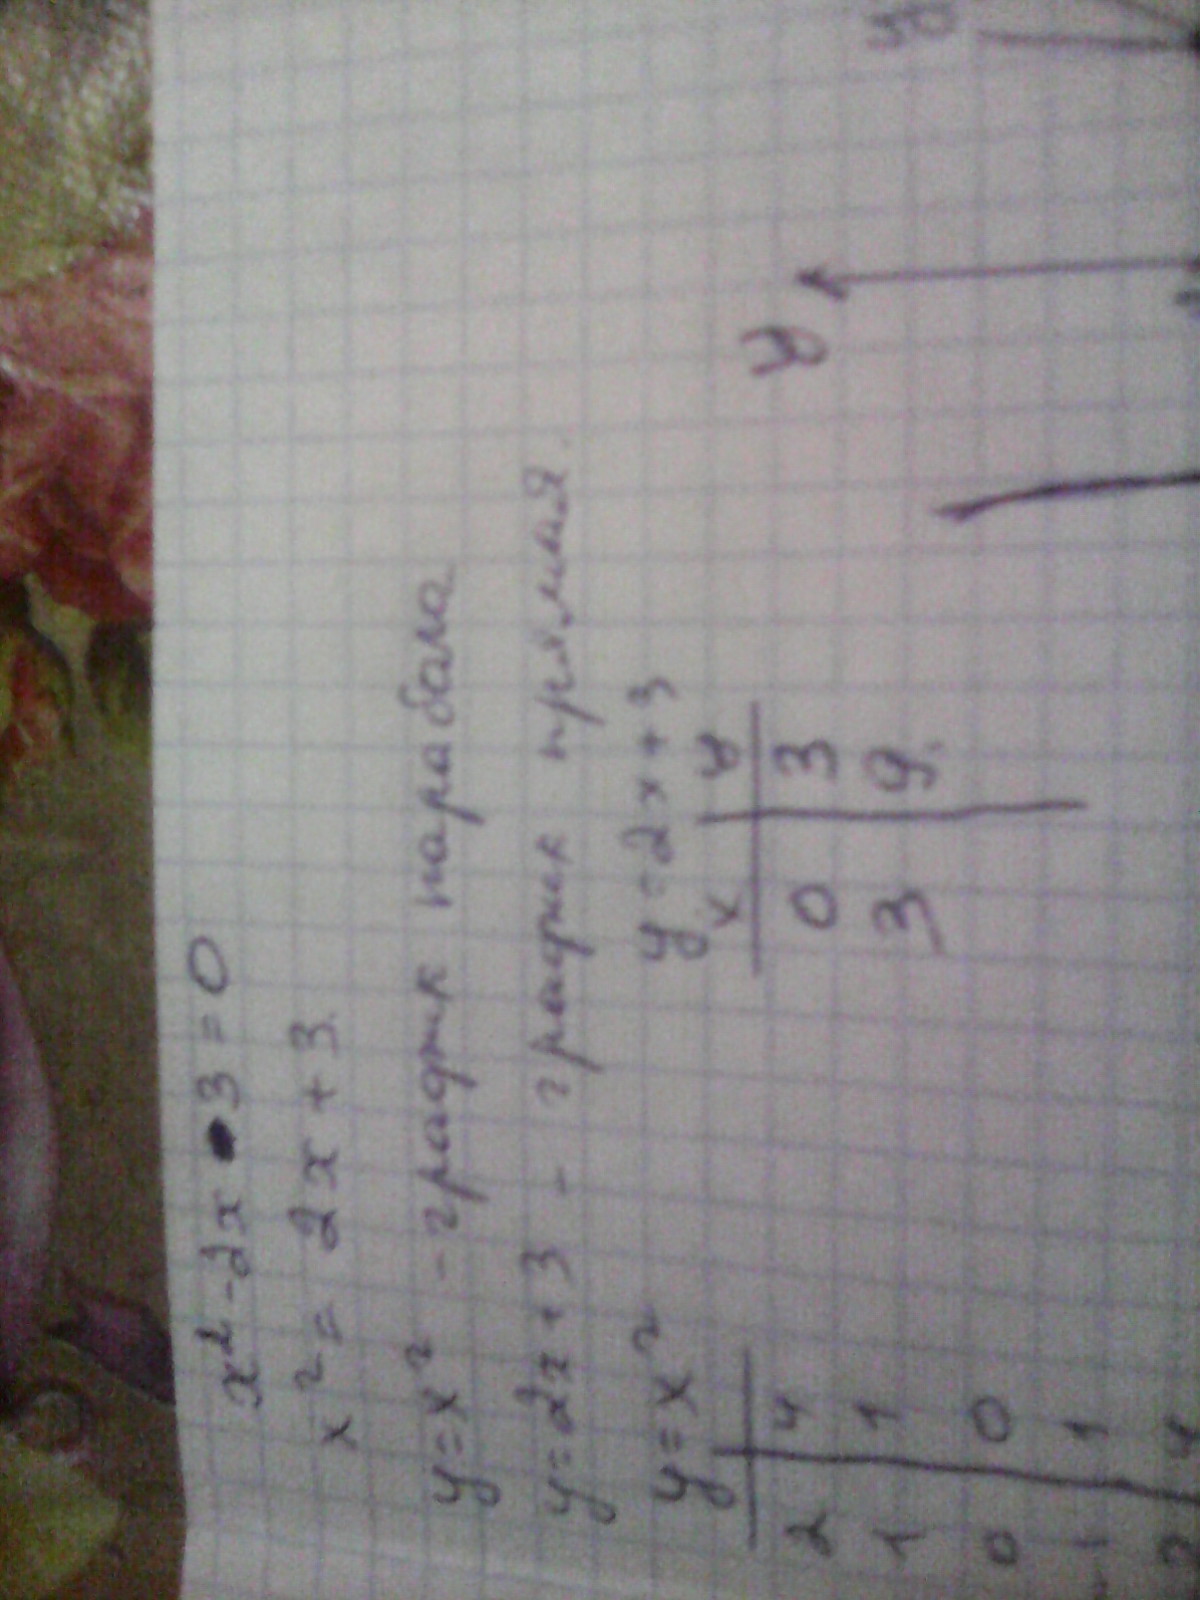 x² - 2x - 3 = 0
x² = 2x + 3.
y = x² - график парабола
y = 2x + 3 - график прямая.
y = x² y = 2x + 3
x y
2 4 0 3
1 1 3 9.
0 0
-1 1
4
y
y